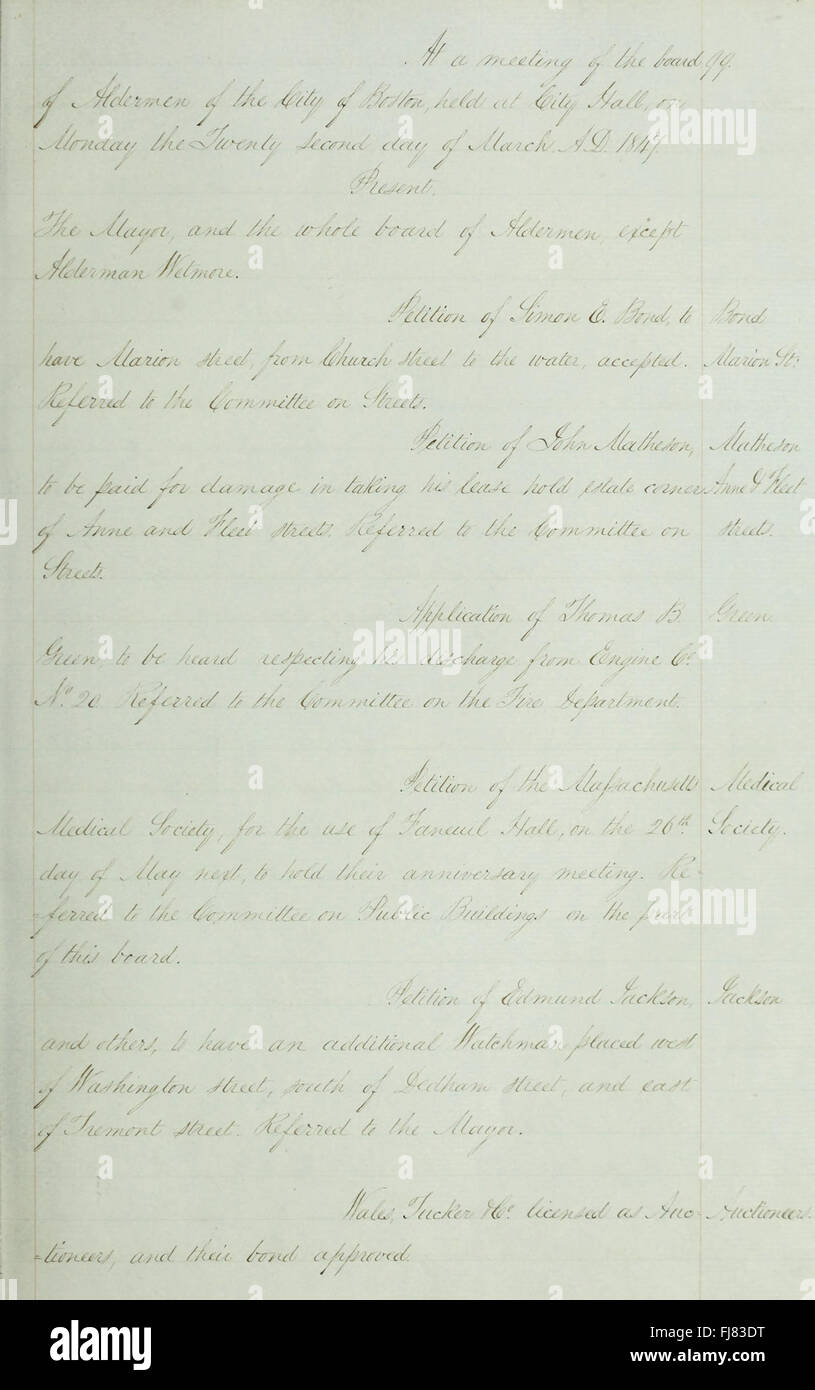 At a meeting of the board 99.
of Aldermen of the City of Boston, held at City Hall, on
Monday the Twenty second day of March A.D. 1847.
Present.
The Mayor, and the whole board of Aldermen, except
Alderman Wetmore.
Petition of Simon E. Bond, to Bond
have Marion street, from Church street to the water, accepted. Marion St:
Referred to the Committee on Streets.
Petition of John Matheson, Matheson
to be paid for damage in taking his lease hold estate corner Anne & Fleet
of Anne and Fleet streets. Referred to the Committee on streets.
Streets.
Application of Thomas B. Green
Green, to be heard respecting his discharge from Engine Co.
No. 20. Referred to the Committee on the Fire Department.
Petition of the Massachusetts Medical
Medical Society, for the use of Faneuil Hall, on the 26th. Society.
day of May next, to hold their anniversary meeting. Re-
-ferred to the Committee on Public Buildings on the part
of this board.
Petition of Edmund Jackson, Jackson
and others, to have an additional Watchman placed west
of Washington street, south of Dedham street, and east
of Tremont street. Referred to the Mayor.
Wales, Tucker & Co. licensed as Auc- Auctioneers.
-tioneers, and their bond approved.
alamy stock photo
FJ83DT
www.alamy.com